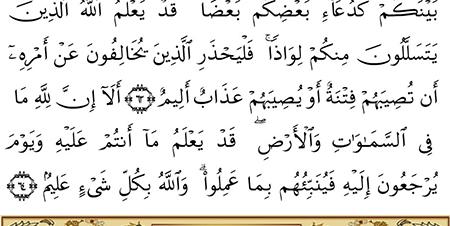 بَيْنَكُمْ كَدُعَآءِ بَعْضِكُم بَعْضًا ۚ قَدْ يَعْلَمُ ٱللَّهُ ٱلَّذِينَ
يَتَسَلَّلُونَ مِنكُمْ لِوَاذًا ۚ فَلْيَحْذَرِ ٱلَّذِينَ يُخَالِفُونَ عَنْ أَمْرِهِۦٓ
أَن تُصِيبَهُمْ فِتْنَةٌ أَوْ يُصِيبَهُمْ عَذَابٌ أَلِيمٌ ﴿٦٣﴾ أَلَآ إِنَّ لِلَّهِ مَا
فِى ٱلسَّمَـٰوَٰتِ وَٱلْأَرْضِ ۖ قَدْ يَعْلَمُ مَآ أَنتُمْ عَلَيْهِ وَيَوْمَ
يُرْجَعُونَ إِلَيْهِ فَيُنَبِّئُهُم بِمَا عَمِلُوا۟ ۗ وَٱللَّهُ بِكُلِّ شَىْءٍ عَلِيمٌۢ ﴿٦٤﴾